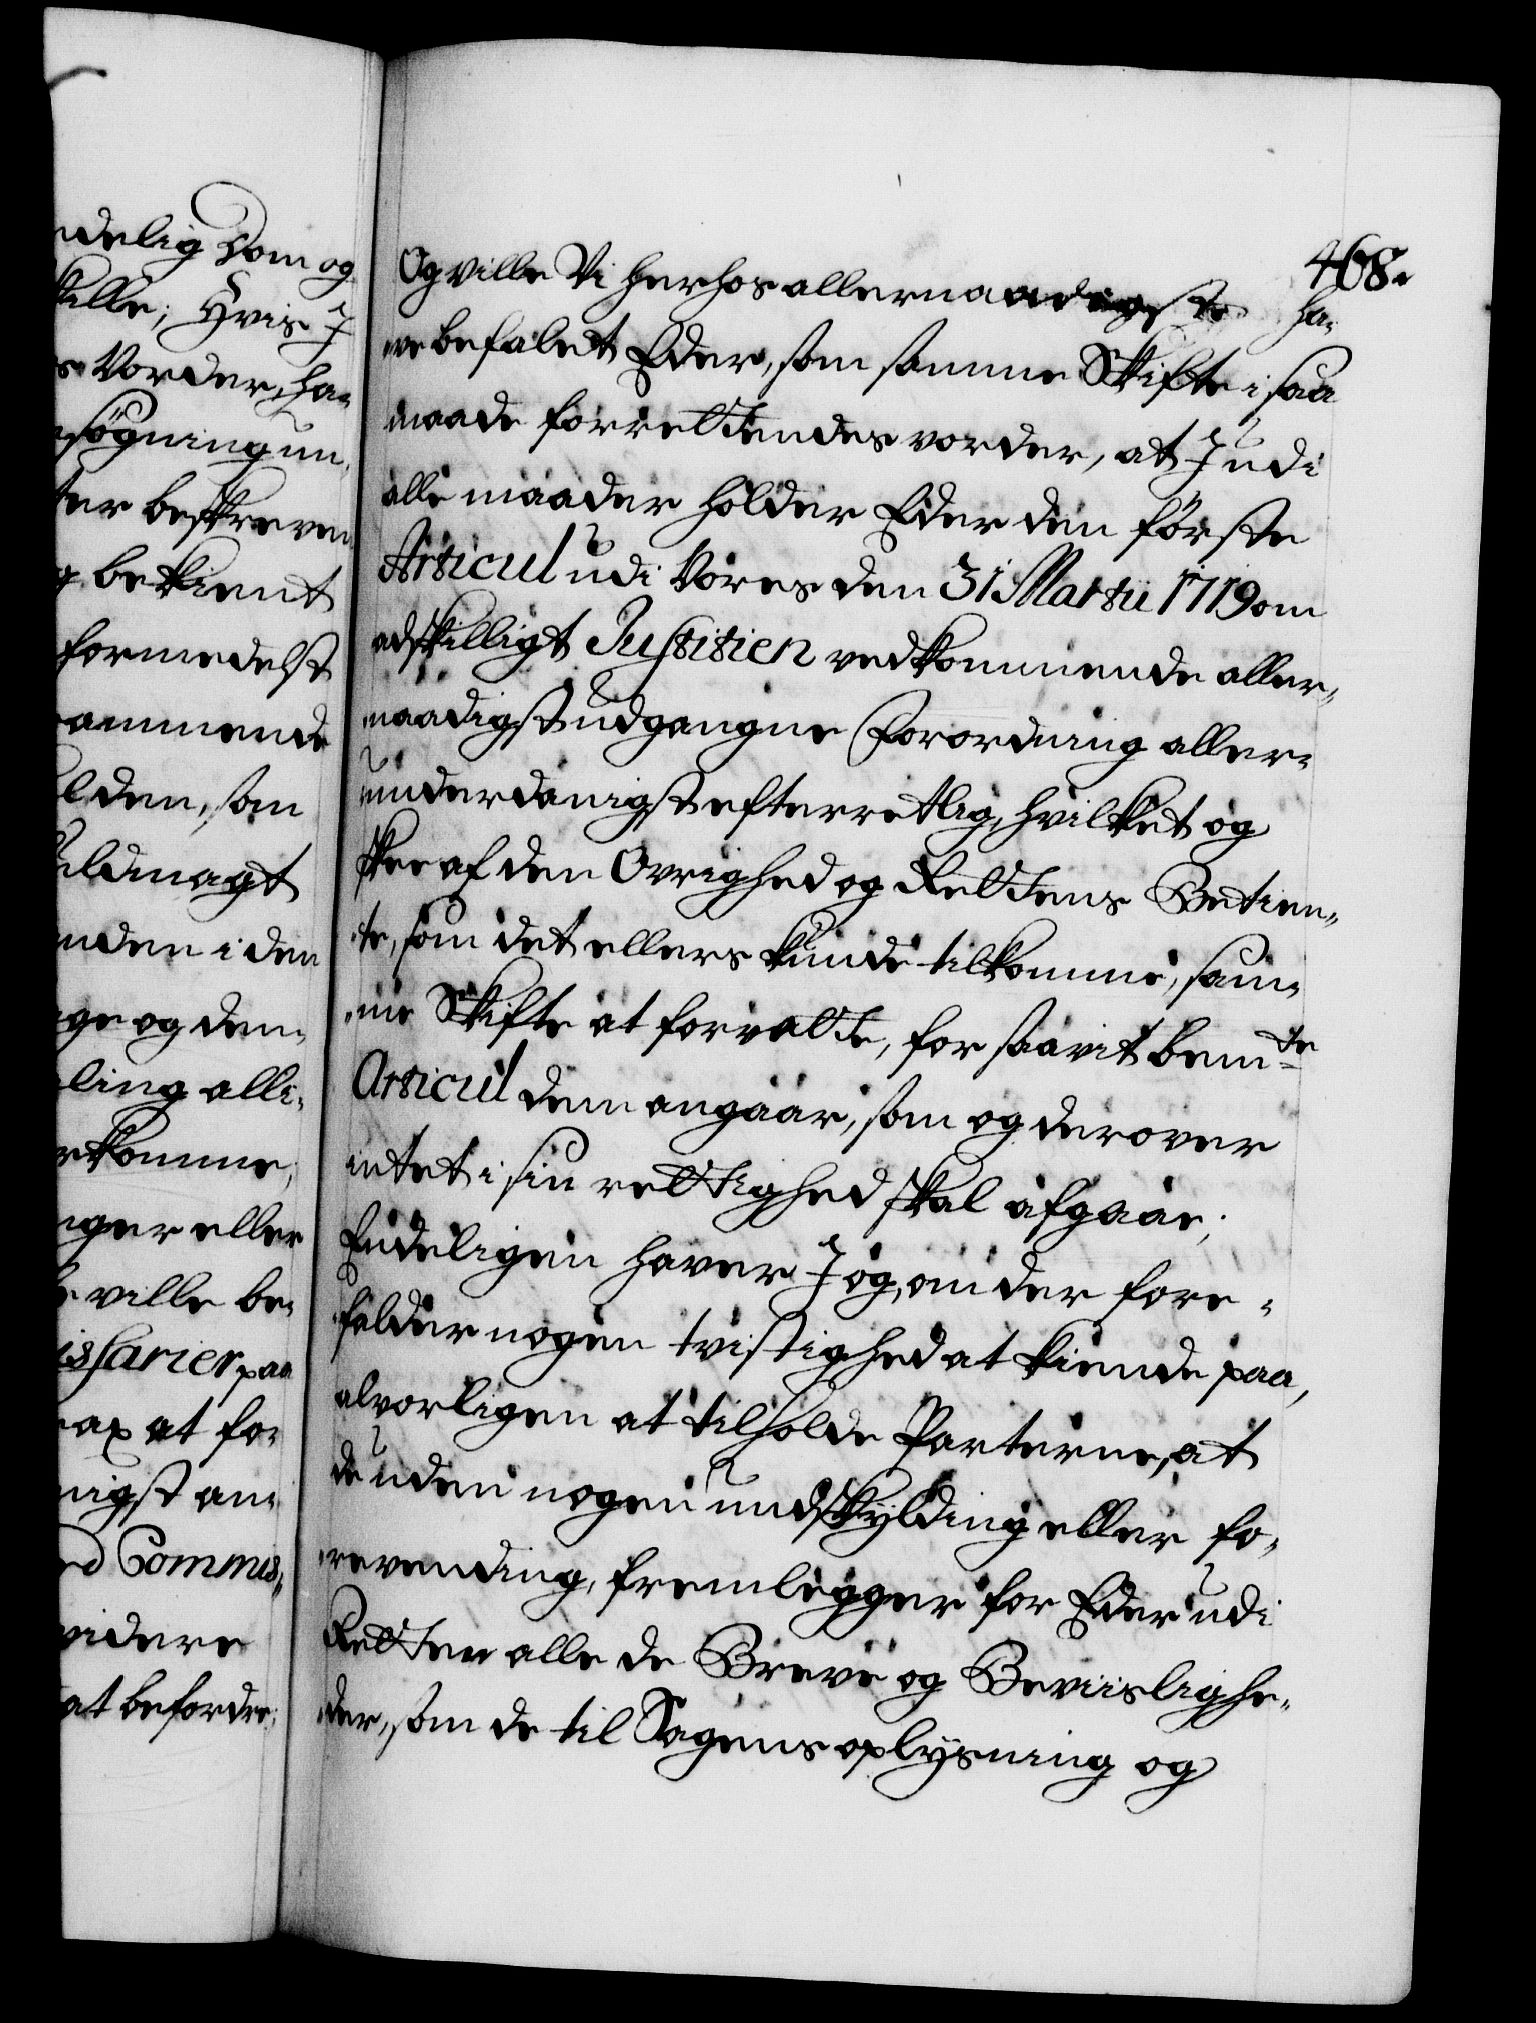 ndelig Dom og
skille; Hvis J
Vorder, ha-
søgning un-
ter beskreven
bekient
formedelst
ammende
lden, som
uldmagt
nden i den
ge og den-
ling alli-
rkomme,
nger eller
ville be-
issarier paa
ax at for-
nigst an-
ed Commis-
videre
at befordre;
468.
Og ville Vi herhos allernaadigste ha-
ve befaledt Eder, som samme Skifte i saa
maade forrettendes vorder, at J udi
alle maader holder Eder den første
Articul udi Vores den 31 Martii 1719 om
adskilligt Justitien vedkommende aller-
naadigst udgangne Forordning aller-
underdanigst efterretlig, hvilket og
skee af den Øvrighed og Rettens Betien-
te, som det ellers kunde tilkomme, sam-
me Skifte at forvalte, for saavit bemte
Articul dem angaar, som og derover
intet i sin rettighed skal afgaae;
Endeligen haver J og, om der fore-
falder nogen tvistighed at kiende paa,
alvorligen at tilholde Parterne, at
de uden nogen undskylding eller fo-
revending, fremlegger for Eder udi
Retten alle de Breve og Beviislighe-
der, som de til Sagens oplysning og